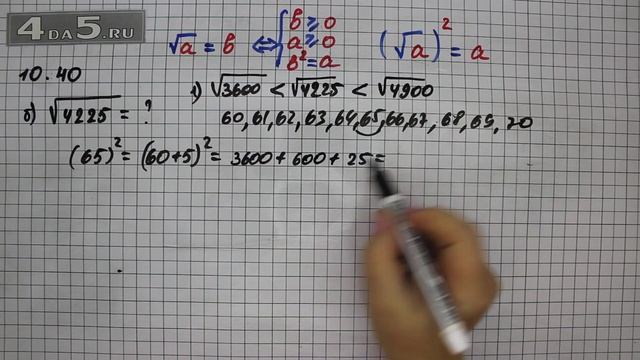 4DA5.RU
√a = b ⇔ { b ≥ 0
a ≥ 0
b² = a
(√a)² = a
10.40
1) √3600 < √4225 < √4900
б) √4225 = ?
60, 61, 62, 63, 64, 65, 66, 67, 68, 69, 70
(65)² = (60+5)² = 3600 + 600 + 25 =